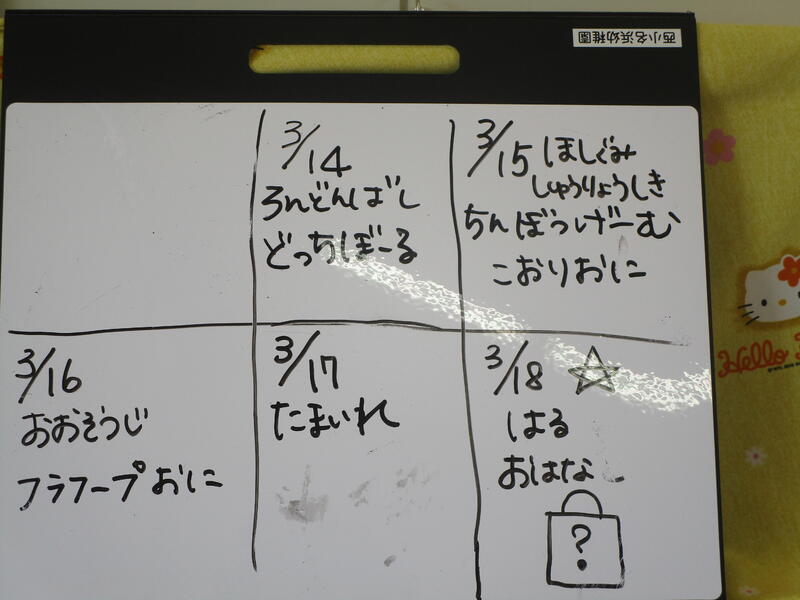 西小名浜幼稚園
3/14
ろんどんばし
どっちぼーる
3/15 ほしぐみ
しゅうりょうしき
ちんぼつげーむ
こおりおに
3/16
おおそうじ
フラフープおに
3/17
たまいれ
3/18
はる
おはな
?
Hello